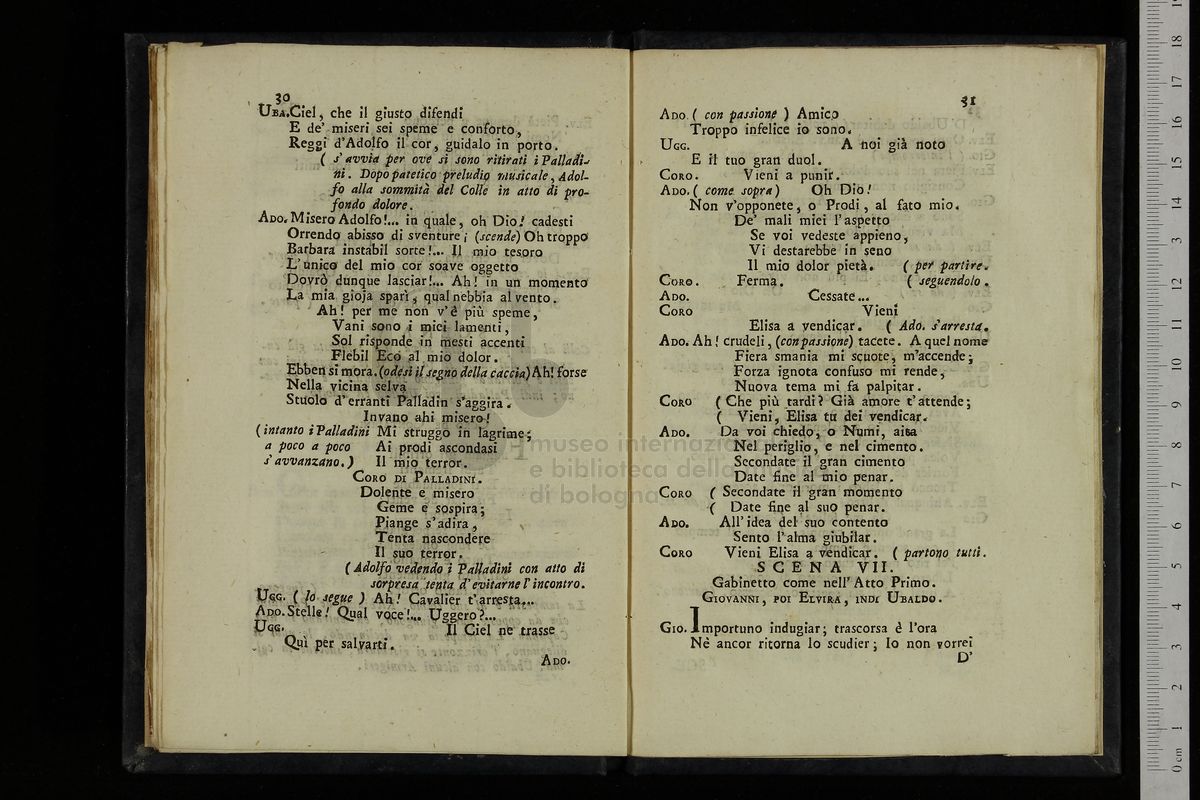 30
UBA. Ciel, che il giusto difendi
E de' miseri sei speme e conforto,
Reggi d'Adolfo il cor, guidalo in porto.
( s' avvia per ove si sono ritirati i Palladi-
ni. Dopo patetico preludio musicale, Adol-
fo alla sommità del Colle in atto di pro-
fondo dolore.
ADO. Misero Adolfo!... in quale, oh Dio! cadesti
Orrendo abisso di sventure; (scende) Oh troppo
Barbara instabil sorte!... Il mio tesoro
L'unico del mio cor soave oggetto
Dovrò dunque lasciar!... Ah! in un momento
La mia gioja sparì, qual nebbia al vento.
Ah! per me non v'è più speme,
Vani sono i miei lamenti,
Sol risponde in mesti accenti
Flebil Eco al mio dolor.
Ebben si mora. (odesi il segno della caccia) Ah! forse
Nella vicina selva
Stuolo d'erranti Palladin s'aggira.
Invano ahi misero!
(intanto i Palladini Mi struggo in lagrime;
a poco a poco Ai prodi ascondasi
s' avvanzano.) Il mio terror.
CORO DI PALLADINI.
Dolente e misero
Geme e sospira;
Piange s'adira,
Tenta nascondere
Il suo terror.
(Adolfo vedendo i Palladini con atto di
sorpresa tenta d'evitarne l'incontro.
UGG. ( lo segue ) Ah! Cavalier t'arresta...
ADO. Stelle! Qual voce!... Uggero?...
UGG. Il Ciel ne trasse
Quì per salvarti.
ADO.
31
ADO. ( con passione ) Amico
Troppo infelice io sono.
UGG. A noi già noto
E il tuo gran duol.
CORO. Vieni a punir.
ADO. ( come sopra) Oh Dio!
Non v'opponete, o Prodi, al fato mio.
De' mali miei l'aspetto
Se voi vedeste appieno,
Vi destarebbe in seno
Il mio dolor pietà. ( per partire.
CORO. Ferma. ( seguendolo.
ADO. Cessate...
CORO Vieni
Elisa a vendicar. ( Ado. s'arresta.
ADO. Ah! crudeli, (con passione) tacete. A quel nome
Fiera smania mi scuote, m'accende;
Forza ignota confuso mi rende,
Nuova tema mi fa palpitar.
CORO ( Che più tardi? Già amore t'attende;
( Vieni, Elisa tu dei vendicar.
ADO. Da voi chiedo, o Numi, aita
Nel periglio, e nel cimento.
Secondate il gran cimento
Date fine al mio penar.
CORO ( Secondate il gran momento
( Date fine al suo penar.
ADO. All'idea del suo contento
Sento l'alma giubilar.
CORO Vieni Elisa a vendicar. ( partono tutti.
SCENA VII.
Gabinetto come nell'Atto Primo.
GIOVANNI, POI ELVIRA, INDI UBALDO.
GIO. Importuno indugiar; trascorsa è l'ora
Nè ancor ritorna lo scudier; Io non vorrei
D'
museo internazionale
e biblioteca della
di bologna
0 cm 1 2 3 4 5 6 7 8 9 10 11 12 13 14 15 16 17 18